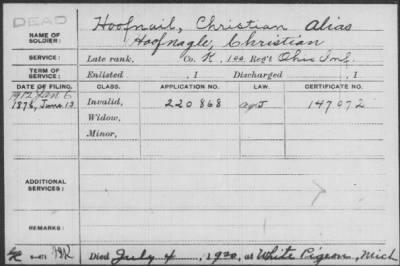 DEAD
NAME OF SOLDIER: Hoofnail, Christian Alias
Hoofnagle, Christian
SERVICE: Late rank, Co. K, 100 Reg't Ohio Inf.
TERM OF SERVICE: Enlisted , 1 Discharged , 1
DATE OF FILING. CLASS. APPLICATION NO. LAW. CERTIFICATE NO.
1876, June 13 Invalid, 220868 147072
Widow,
Minor,
ADDITIONAL SERVICES:
REMARKS:
Died July 4, 1920, at White Pigeon, Mich